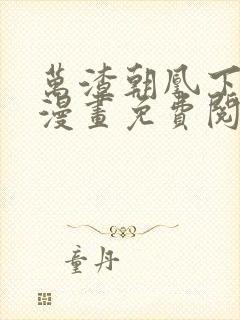 萬渣朝凰下
漫畫免費閱
童丹